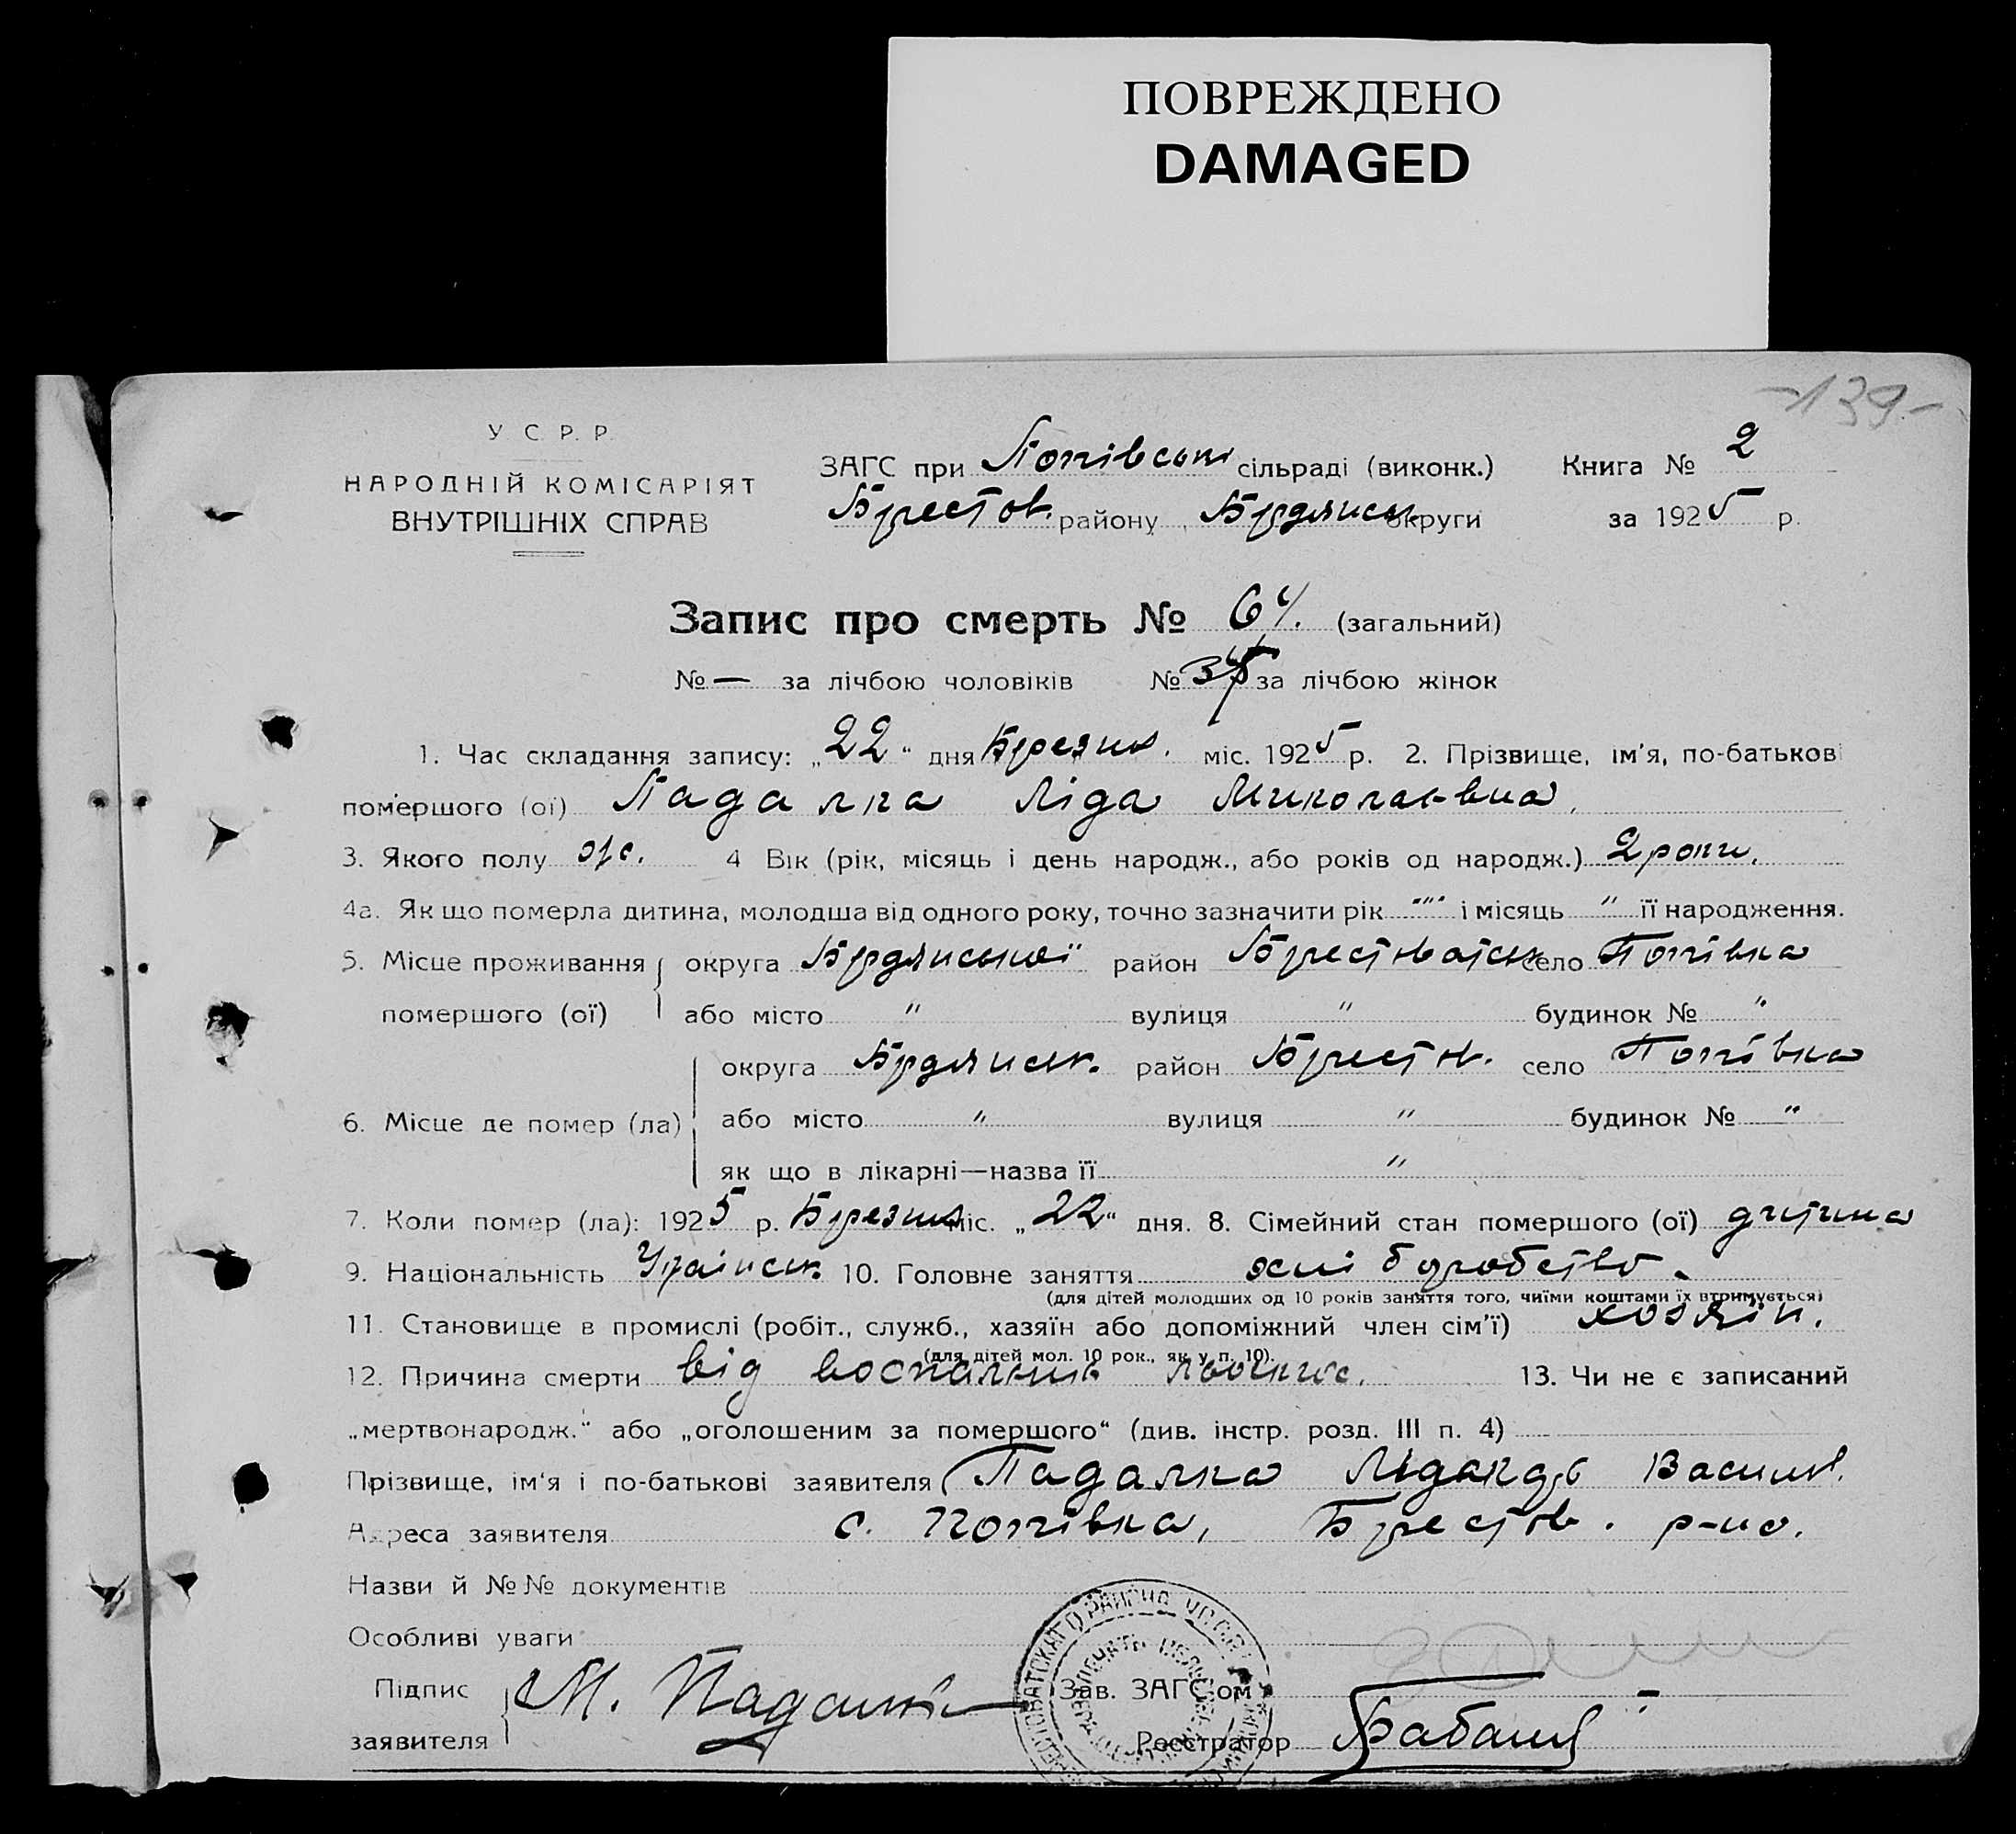 ПОВРЕЖДЕНО
DAMAGED
-139-
У С. Р. Р.
НАРОДНІЙ КОМІСАРІЯТ
ВНУТРІШНІХ СПРАВ
ЗАГС при Попівські сільраді (виконк.) Книга № 2
Брестов. району Брдянськ округи за 1925 р.
Запис про смерть № (загальний)
№ — за лічбою чоловіків № за лічбою жінок
1. Час складання запису: „22" дня Брезня. міс. 1925 р. 2. Прізвище, ім'я, по-батькові
помершого (ої) Падалка Ліда Миколаєвна.
3. Якого полу ж. 4 Вік (рік, місяць і день народж., або років од народж.) 2 роки.
4а. Як що померла дитина, молодша від одного року, точно зазначити рік "" і місяць " її народження.
5. Місце проживання округа Брдянської район село Попівка
помершого (ої) або місто " вулиця " будинок № "
округа Брдянськ. район Брестов. село Попівка
6. Місце де помер (ла) або місто " вулиця " будинок № "
як що в лікарні—назва її "
7. Коли помер (ла): 1925 р. Брезня міс. „22" дня. 8. Сімейний стан помершого (ої) дитина
9. Національність Украінськ 10. Головне заняття хліборобство.
(для дітей молодших од 10 років заняття того, чиїми коштами їх втримується)
11. Становище в промислі (робіт., служб., хазяїн або допоміжний член сім'ї) хозяїн.
(для дітей мол. 10 рок., як у п. 10).
12. Причина смерти від воспаления 13. Чи не є записаний
„мертвонародж." або „оголошеним за помершого" (див. інстр. розд. III п. 4)
Прізвище, ім'я і по-батькові заявителя Падалка Васильов.
Адреса заявителя с. Попівка, Брестов. р-на.
Назви й №№ документів
Особливі уваги
Підпис М. Падалка Зав. ЗАГС'ом
заявителя Реєстратор